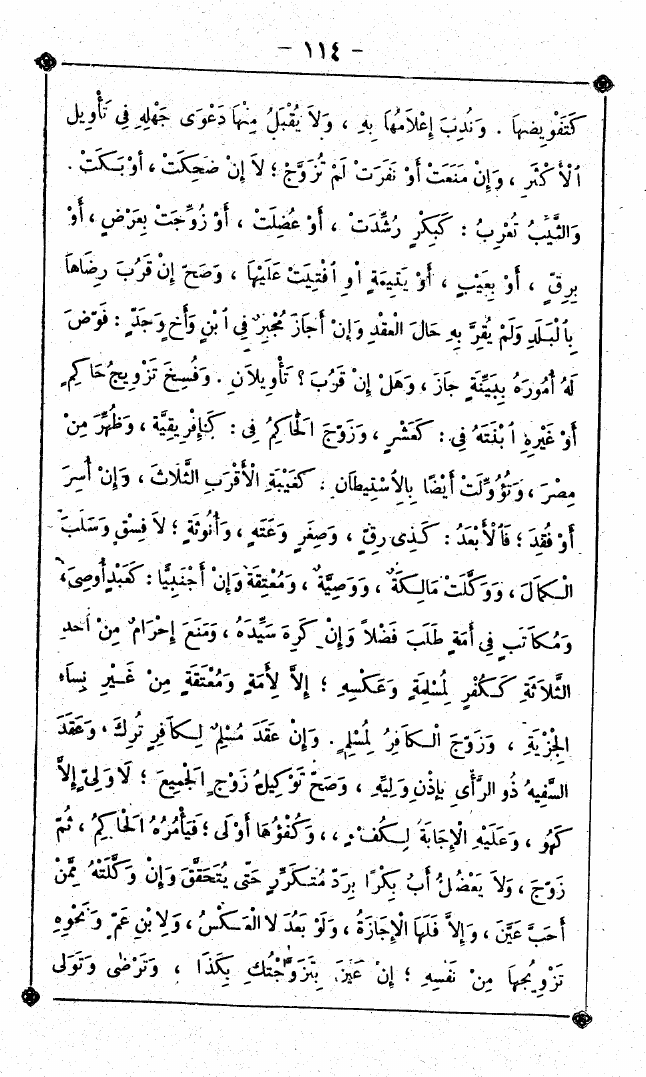 - ١١٤ -
كَتَفْوِيضِهَا . وَنُدِبَ إِعْلَامُهَا بِهِ ، وَلَا يُقْبَلُ مِنْهَا دَعْوَى جَهْلِهِ فِي تَأْوِيلِ
ٱلْأَكْثَرِ ، وَإِنْ مَنَعَتْ أَوْ نَفَرَتْ لَمْ تُزَوَّجْ ؛ لَا إِنْ ضَحِكَتْ ، أَوْ بَكَتْ .
وَالثَّيِّبُ تُعْرِبُ : كَبِكْرٍ رُشِّدَتْ ، أَوْ عُضِلَتْ ، أَوْ زُوِّجَتْ بِعَرْضٍ ، أَوْ
بِرِقٍّ ، أَوْ بِعَيْبٍ ، أَوْ يَتِيمَةٍ أَوِ افْتِيتَ عَلَيْهَا ، وَصَحَّ إِنْ قَرُبَ رِضَاهَا
بِالْبَلَدِ وَلَمْ يُقِرَّ بِهِ حَالَ الْعَقْدِ وَإِنْ أَجَازَ مُجْبِرٌ فِي ٱبْنٍ وَأَخٍ وَجَدٍّ : فَوَّضَ
لَهُ أُمُورَهُ بِبَيِّنَةٍ جَازَ ، وَهَلْ إِنْ قَرُبَ ؟ تَأْوِيلَانِ . وَفُسِخَ تَزْوِيجُ حَاكِمٍ
أَوْ غَيْرِهِ ٱبْنَتَهُ فِي : كَعَشْرٍ ، وَزَوَّجَ الْحَاكِمُ فِي : كَإِفْرِيقِيَّةَ ، وَظُهِّرَ مِنْ
مِصْرَ ، وَتُؤُوِّلَتْ أَيْضًا بِالِاسْتِيطَانِ . كَغَيْبَةِ الْأَقْرَبِ الثَّلَاثَ ، وَإِنْ أُسِرَ
أَوْ فُقِدَ ؛ فَالْأَبْعَدُ : كَذِي رِقٍّ ، وَصِغَرٍ وَعَتَهٍ ، وَأُنُوثَةٍ ؛ لَا فِسْقٍ وَسَلَبَ
الْكَمَالَ ، وَوَكَّلَتْ مَالِكَةٌ ، وَوَصِيَّةٌ ، وَمُعْتِقَةٌ وَإِنْ أَجْنَبِيًّا : كَعَبْدٍ أُوصِيَ ،
وَمُكَاتَبٍ فِي أَمَةٍ طَلَبَ فَضْلًا وَإِنْ كَرِهَ سَيِّدُهُ ، وَمَنَعَ إِحْرَامٌ مِنْ أَحَدِ
الثَّلَاثَةِ كَكُفْرٍ لِمُسْلِمَةٍ وَعَكْسِهِ ؛ إِلَّا لِأَمَةٍ وَمُعْتَقَةٍ مِنْ غَيْرِ نِسَاءِ
الْجِزْيَةِ ، وَزَوَّجَ الْكَافِرُ لِمُسْلِمٍ . وَإِنْ عَقَدَ مُسْلِمٌ لِكَافِرٍ تُرِكَ ، وَعَقَدَ
السَّفِيهُ ذُو الرَّأْيِ بِإِذْنِ وَلِيِّهِ ، وَصَحَّ تَوْكِيلُ زَوْجٍ الْجَمِيعَ ؛ لَا وَلِيٍّ إِلَّا
كَهُوَ ، وَعَلَيْهِ الْإِجَابَةُ لِكُفْءٍ ، ، وَكُفْؤُهَا أَوْلَى ؛ فَيَأْمُرُهُ الْحَاكِمُ ، ثُمَّ
زَوَّجَ ، وَلَا يَعْضُلُ أَبٌ بِكْرًا بِرَدٍّ مُتَكَرِّرٍ حَتَّى يُتَحَقَّقَ وَإِنْ وَكَّلَتْهُ مِمَّنْ
أَحَبَّ عَيَّنَ ، وَإِلَّا فَلَهَا الْإِجَازَةُ ، وَلَوْ بَعُدَ لَا الْعَكْسُ ، وَلِابْنِ عَمٍّ وَنَحْوِهِ
تَزْوِيجُهَا مِنْ نَفْسِهِ ؛ إِنْ عَيَّنَ بِتَزَوَّجْتُكِ بِكَذَا ، وَتَرْضَى وَتَوَلَّى